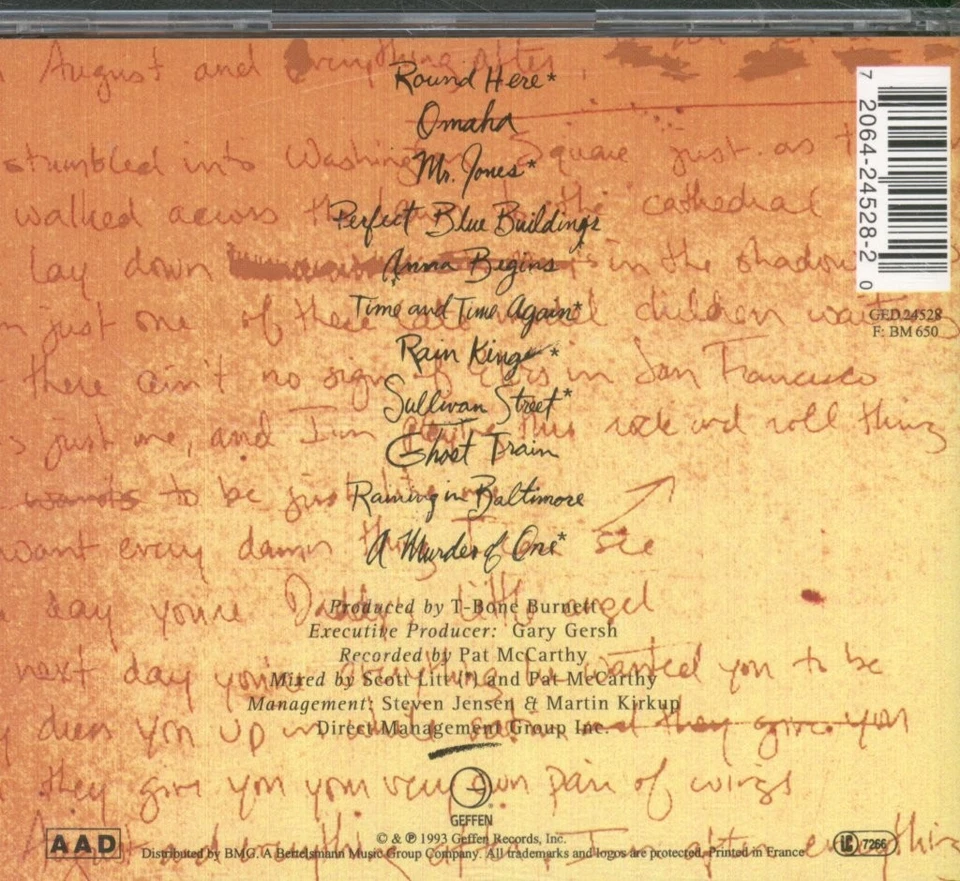 August and everything after,
Round Here*
Omaha
stumbled into Washington Square just as t
Mr. Jones*
walked across the cathedral
Perfect Blue Buildings
lay down in the shadow
Anna Begins
Time and Time Again*
just one of these children
Rain King *
there ain't no sign of in San Francisco
Sullivan Street*
just me, and I'm this rock and roll thing
Ghost Train
wants to be just
Raining in Baltimore
want every damn see
A Murder of One*
day you're Daddy's little angel
Produced by T-Bone Burnett
Executive Producer: Gary Gersh
Recorded by Pat McCarthy
next day you're everything wanted you to be
Mixed by Scott Litt (*) and Pat McCarthy
Management: Steven Jensen & Martin Kirkup
Direct Management Group Inc.
dress you up in and they give you
they give you your very own pair of wings
GEFFEN
®
© & ℗ 1993 Geffen Records, Inc.
Distributed by BMG. A Bertelsmann Music Group Company. All trademarks and logos are protected. Printed in France
AAD
LC 7266
7 2064-24528-2 0
GED 24528
F: BM 650